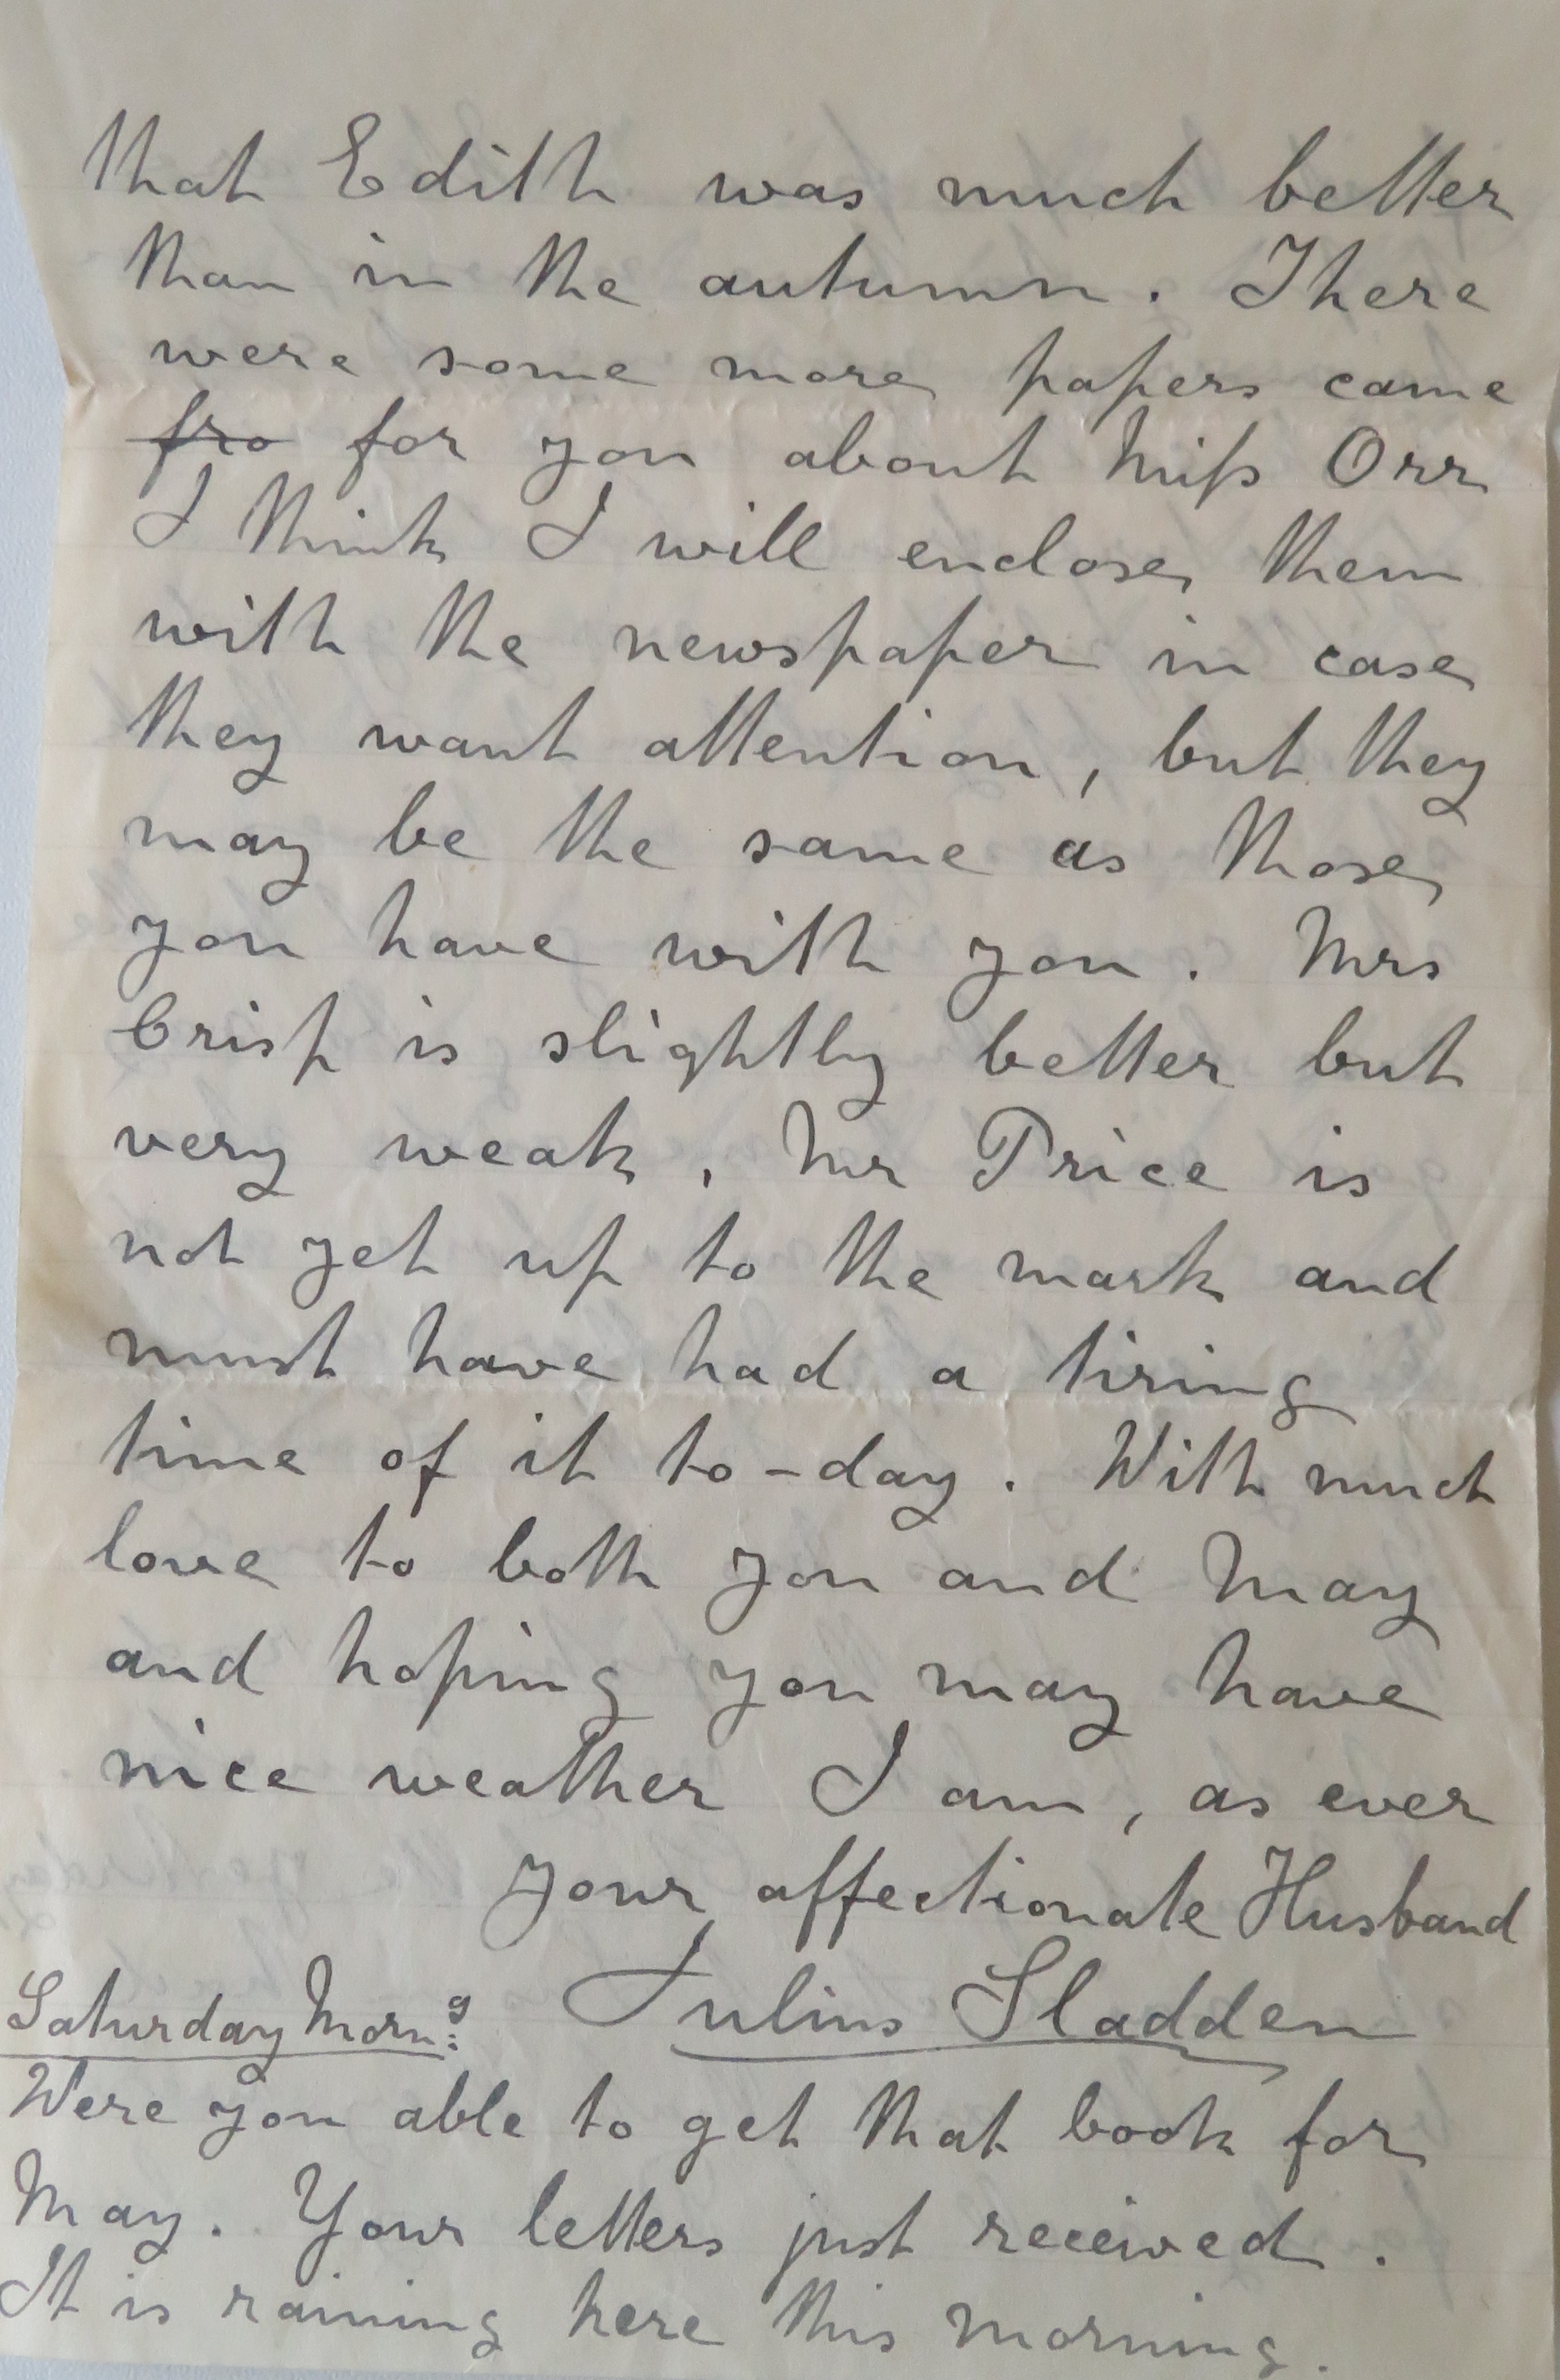 that Edith was much better
than in the autumn. There
were some more papers came
fro for you about Miſs Orr
I think I will enclose them
with the newspaper in case
they want attention, but they
may be the same as those
you have with you. Mrs
Crisp is slightly better but
very weak, Mr Price is
not yet up to the mark and
must have had a tiring
time of it to-day. With much
love to both you and May
and hoping you may have
nice weather I am, as ever
your affectionate Husband
Julius Sladden
Saturday Morng:
Were you able to get that book for
May. Your letters just received.
It is raining here this morning.